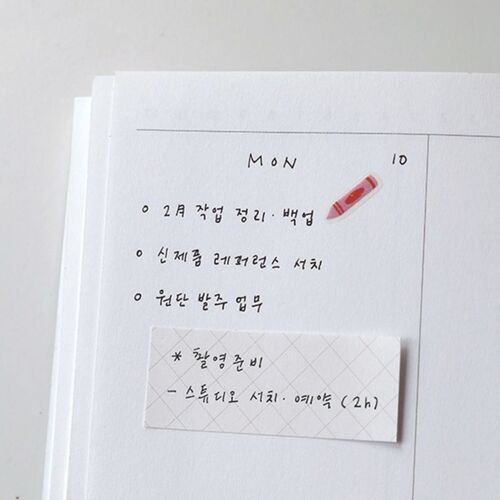 MON 10
o 2月 작업 정리·백업
o 신제품 레퍼런스 서치
o 원단 발주 업무
* 촬영준비
- 스튜디오 서치·예약 (2h)